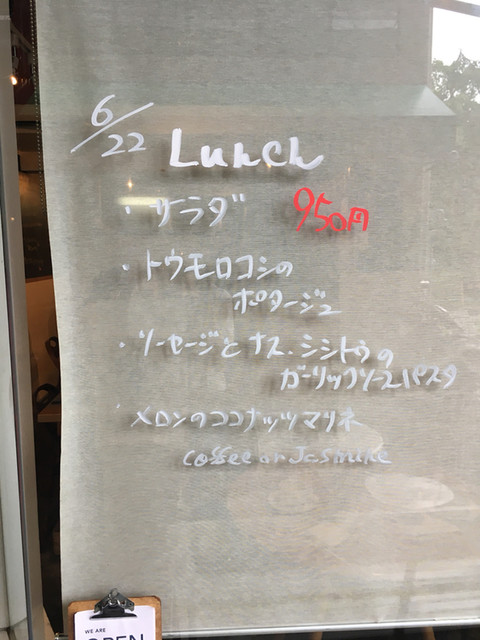 6/22 Lunch
・サラダ 950円
・トウモロコシの
ポタージュ
・ソーセージとナス、シシトウの
ガーリックソースパスタ
メロンのココナッツマリネ
coffee or Jasmine
WE ARE
OPEN